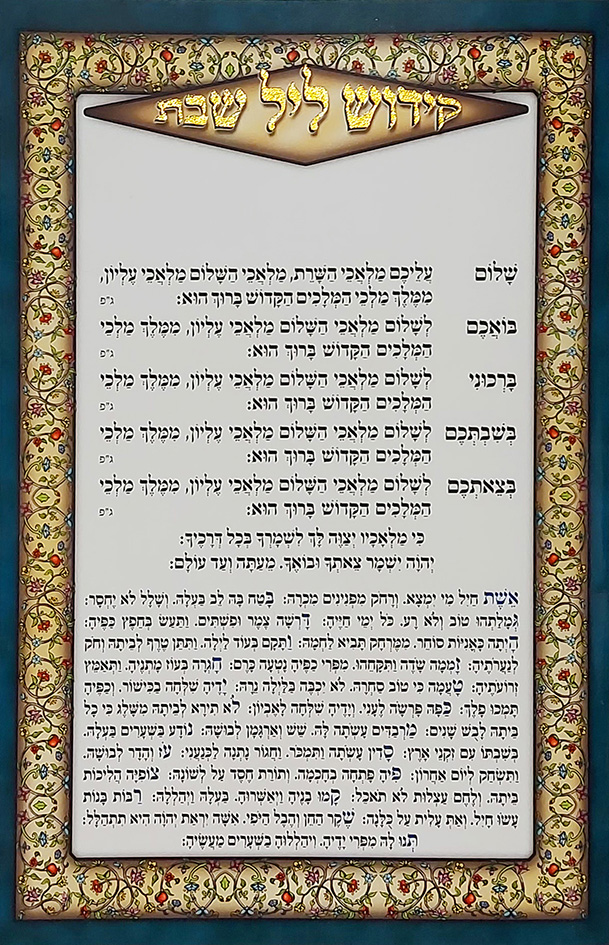 קידוש ליל שבת
שָׁלוֹם עֲלֵיכֶם מַלְאֲכֵי הַשָּׁרֵת, מַלְאֲכֵי הַשָּׁלוֹם מַלְאֲכֵי עֶלְיוֹן,
מִמֶּלֶךְ מַלְכֵי הַמְּלָכִים הַקָּדוֹשׁ בָּרוּךְ הוּא: ג"פ
בּוֹאֲכֶם לְשָׁלוֹם מַלְאֲכֵי הַשָּׁלוֹם מַלְאֲכֵי עֶלְיוֹן, מִמֶּלֶךְ מַלְכֵי
הַמְּלָכִים הַקָּדוֹשׁ בָּרוּךְ הוּא: ג"פ
בָּרְכוּנִי לְשָׁלוֹם מַלְאֲכֵי הַשָּׁלוֹם מַלְאֲכֵי עֶלְיוֹן, מִמֶּלֶךְ מַלְכֵי
הַמְּלָכִים הַקָּדוֹשׁ בָּרוּךְ הוּא: ג"פ
בְּשִׁבְתְּכֶם לְשָׁלוֹם מַלְאֲכֵי הַשָּׁלוֹם מַלְאֲכֵי עֶלְיוֹן, מִמֶּלֶךְ מַלְכֵי
הַמְּלָכִים הַקָּדוֹשׁ בָּרוּךְ הוּא: ג"פ
בְּצֵאתְכֶם לְשָׁלוֹם מַלְאֲכֵי הַשָּׁלוֹם מַלְאֲכֵי עֶלְיוֹן, מִמֶּלֶךְ מַלְכֵי
הַמְּלָכִים הַקָּדוֹשׁ בָּרוּךְ הוּא: ג"פ
כִּי מַלְאָכָיו יְצַוֶּה לָּךְ לִשְׁמָרְךָ בְּכָל דְּרָכֶיךָ:
יְהֹוָה יִשְׁמָר צֵאתְךָ וּבוֹאֶךָ. מֵעַתָּה וְעַד עוֹלָם:
אֵשֶׁת חַיִל מִי יִמְצָא. וְרָחֹק מִפְּנִינִים מִכְרָהּ: בָּטַח בָּהּ לֵב בַּעְלָהּ. וְשָׁלָל לֹא יֶחְסָר:
גְּמָלַתְהוּ טוֹב וְלֹא רָע. כֹּל יְמֵי חַיֶּיהָ: דָּרְשָׁה צֶמֶר וּפִשְׁתִּים. וַתַּעַשׂ בְּחֵפֶץ כַּפֶּיהָ:
הָיְתָה כָּאֳנִיּוֹת סוֹחֵר. מִמֶּרְחָק תָּבִיא לַחְמָהּ: וַתָּקָם בְּעוֹד לַיְלָה. וַתִּתֵּן טֶרֶף לְבֵיתָהּ וְחֹק
לְנַעֲרֹתֶיהָ: זָמְמָה שָׂדֶה וַתִּקָּחֵהוּ. מִפְּרִי כַפֶּיהָ נָטְעָה כָּרֶם: חָגְרָה בְעוֹז מָתְנֶיהָ. וַתְּאַמֵּץ
זְרוֹעֹתֶיהָ: טָעֲמָה כִּי טוֹב סַחְרָהּ. לֹא יִכְבֶּה בַּלַּיְלָה נֵרָהּ: יָדֶיהָ שִׁלְּחָה בַכִּישׁוֹר. וְכַפֶּיהָ
תָּמְכוּ פָלֶךְ: כַּפָּהּ פָּרְשָׂה לֶעָנִי. וְיָדֶיהָ שִׁלְּחָה לָאֶבְיוֹן: לֹא תִירָא לְבֵיתָהּ מִשָּׁלֶג כִּי כָל
בֵּיתָהּ לָבֻשׁ שָׁנִים: מַרְבַדִּים עָשְׂתָה לָּהּ. שֵׁשׁ וְאַרְגָּמָן לְבוּשָׁהּ: נוֹדָע בַּשְּׁעָרִים בַּעְלָהּ.
בְּשִׁבְתּוֹ עִם זִקְנֵי אָרֶץ: סָדִין עָשְׂתָה וַתִּמְכֹּר. וַחֲגוֹר נָתְנָה לַכְּנַעֲנִי: עֹז וְהָדָר לְבוּשָׁהּ.
וַתִּשְׂחַק לְיוֹם אַחֲרוֹן: פִּיהָ פָּתְחָה בְחָכְמָה. וְתוֹרַת חֶסֶד עַל לְשׁוֹנָהּ: צוֹפִיָּה הֲלִיכוֹת
בֵּיתָהּ. וְלֶחֶם עַצְלוּת לֹא תֹאכֵל: קָמוּ בָנֶיהָ וַיְאַשְּׁרוּהָ. בַּעְלָהּ וַיְהַלְלָהּ: רַבּוֹת בָּנוֹת
עָשׂוּ חָיִל. וְאַתְּ עָלִית עַל כֻּלָּנָה: שֶׁקֶר הַחֵן וְהֶבֶל הַיֹּפִי. אִשָּׁה יִרְאַת יְהֹוָה הִיא תִתְהַלָּל:
תְּנוּ לָהּ מִפְּרִי יָדֶיהָ. וִיהַלְלוּהָ בַשְּׁעָרִים מַעֲשֶׂיהָ: